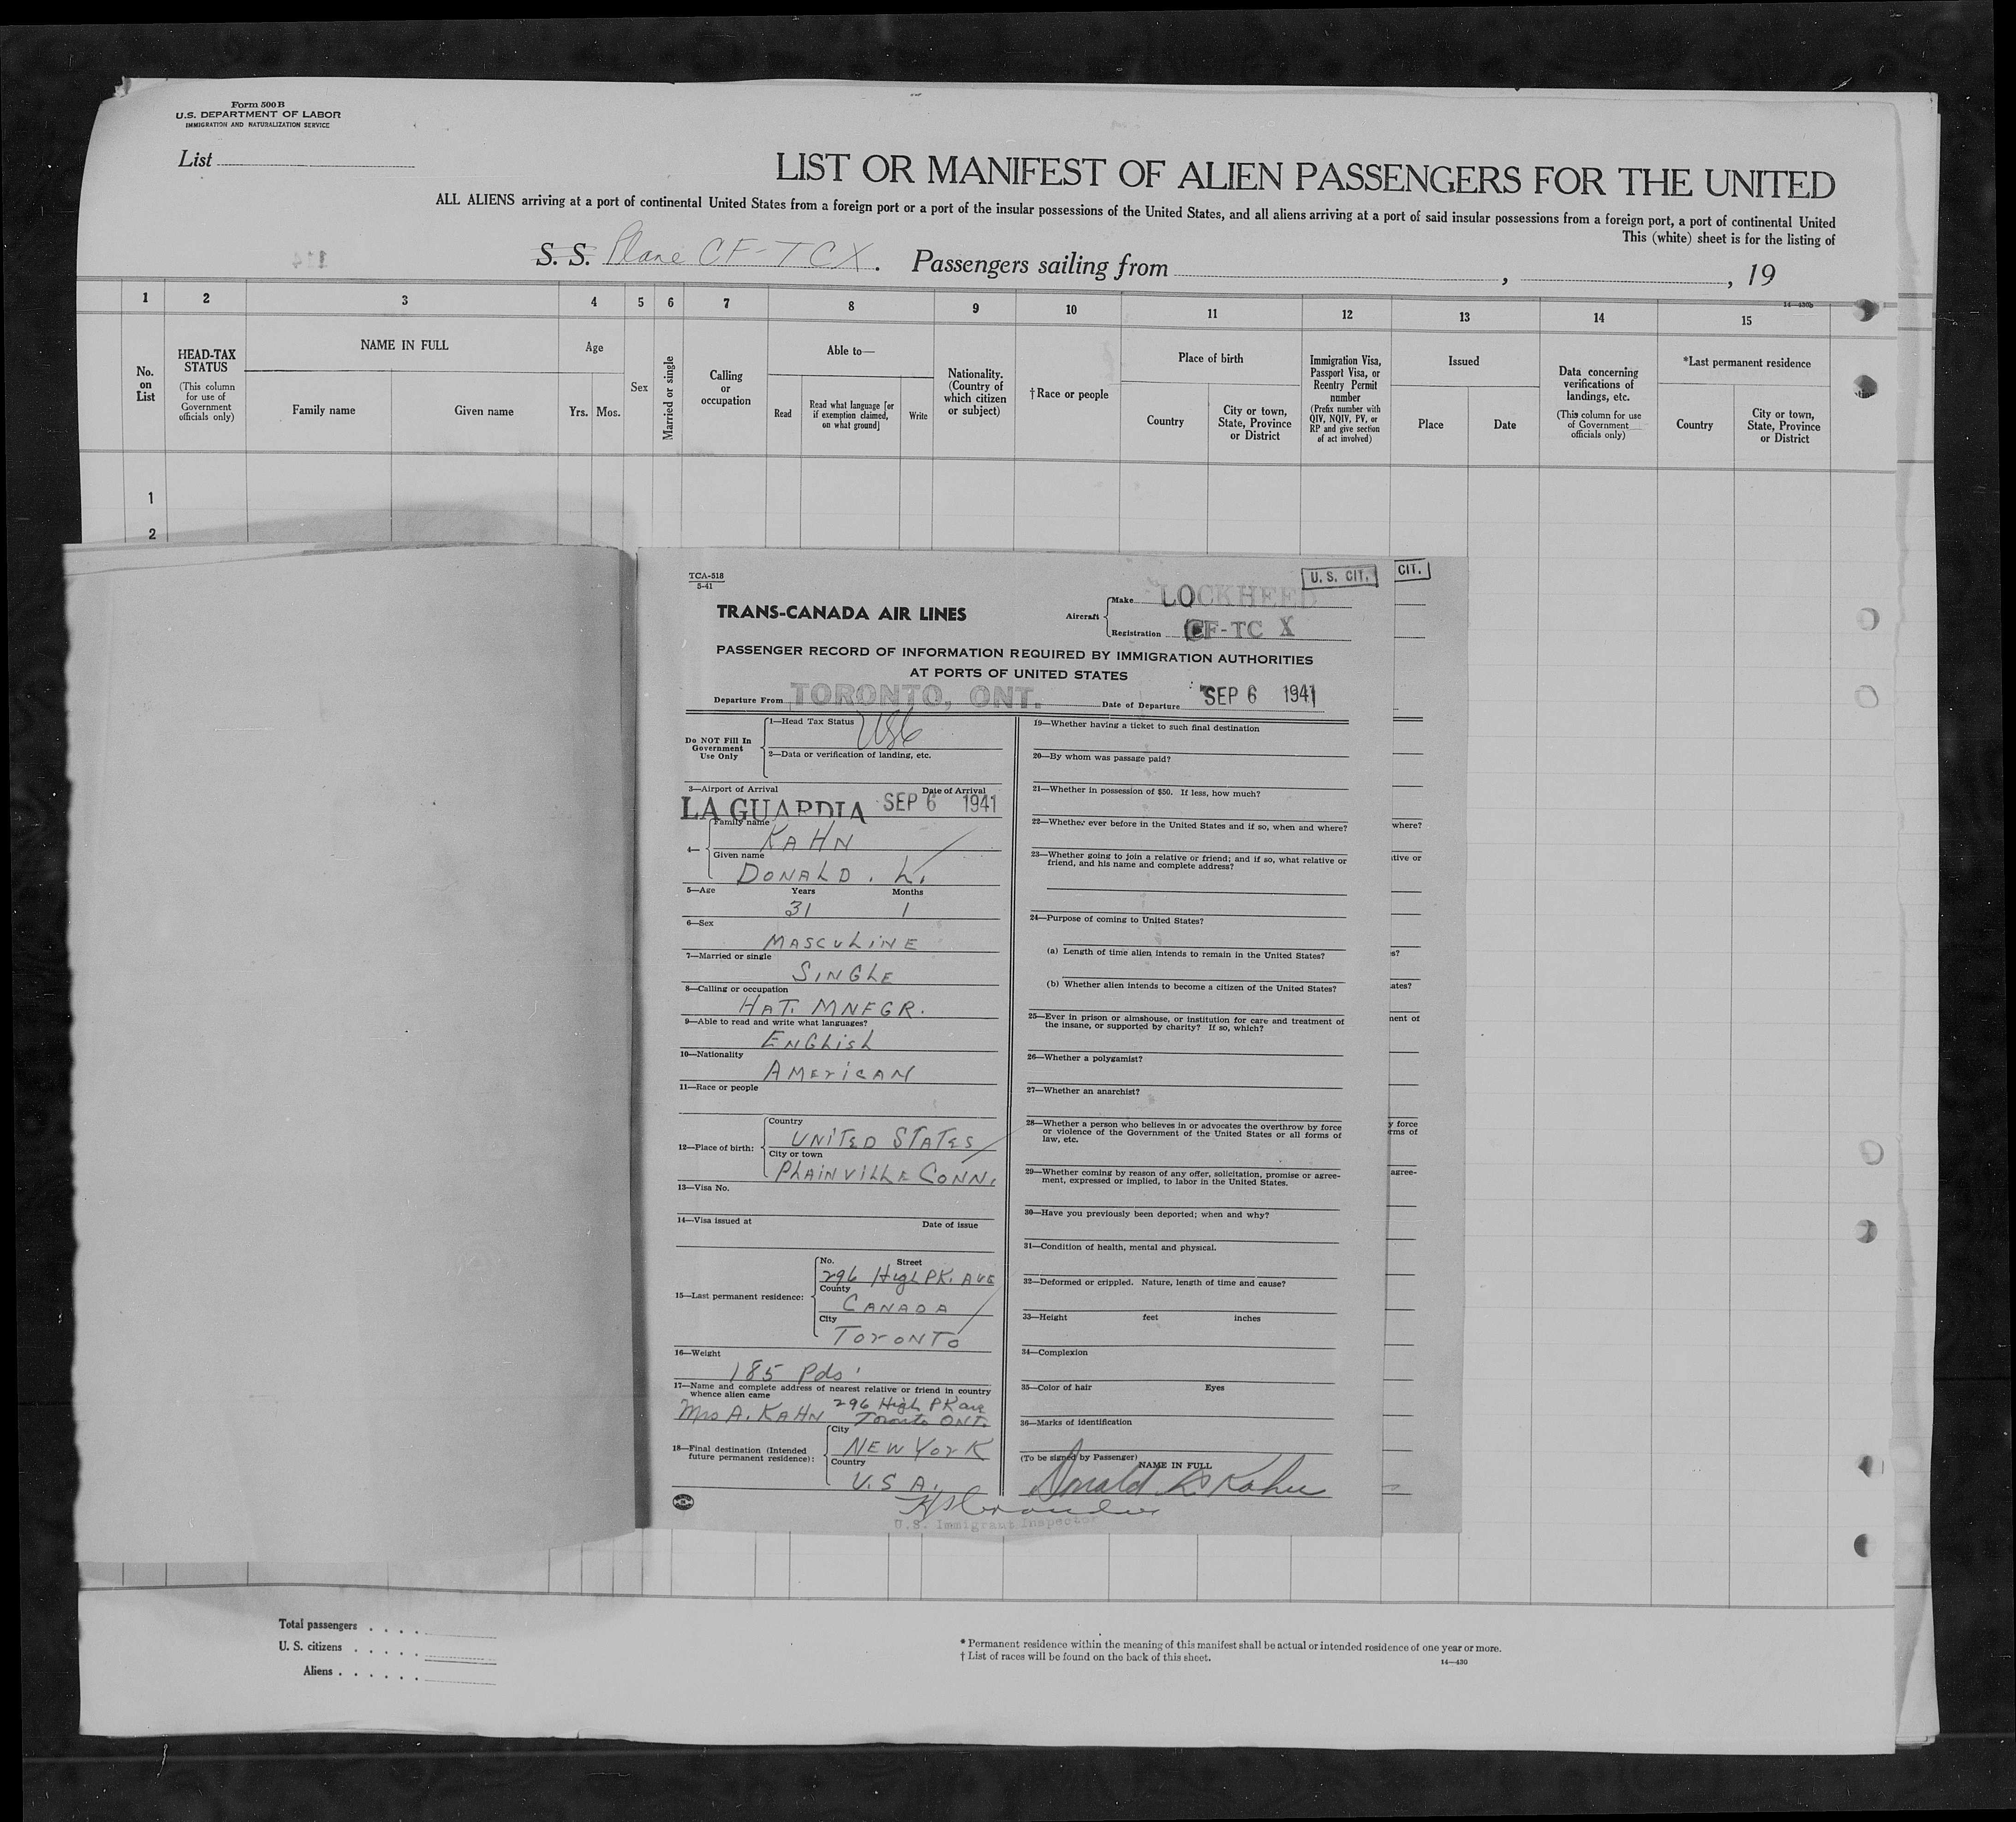 Form 500 B
U.S. DEPARTMENT OF LABOR
IMMIGRATION AND NATURALIZATION SERVICE
List
LIST OR MANIFEST OF ALIEN PASSENGERS FOR THE UNITED
ALL ALIENS arriving at a port of continental United States from a foreign port or a port of the insular possessions of the United States, and all aliens arriving at a port of said insular possessions from a foreign port, a port of continental United
This (white) sheet is for the listing of
S. S. Plane CF-TCX. Passengers sailing from , , 19
14—430b
1 2 3 4 5 6 7 8 9 10 11 12 13 14 15
No. on List
HEAD-TAX STATUS
(This column for use of Government officials only)
NAME IN FULL
Family name Given name
Age
Yrs. Mos.
Sex
Married or single
Calling or occupation
Able to—
Read
Read what language [or if exemption claimed, on what ground]
Write
Nationality. (Country of which citizen or subject)
†Race or people
Place of birth
Country
City or town, State, Province or District
Immigration Visa, Passport Visa, or Reentry Permit number
(Prefix number with QIV, NQIV, PV, or RP and give section of act involved)
Issued
Place Date
Data concerning verifications of landings, etc.
(This column for use of Government officials only)
*Last permanent residence
Country
City or town, State, Province or District
1
2
TCA-518
5-41
U. S. CIT.
CIT.
TRANS-CANADA AIR LINES
Aircraft
Make LOCKHEED
Registration CF-TC X
PASSENGER RECORD OF INFORMATION REQUIRED BY IMMIGRATION AUTHORITIES
AT PORTS OF UNITED STATES
Departure From TORONTO, ONT. Date of Departure SEP 6 1941
Do NOT Fill In
Government
Use Only
1—Head Tax Status
2—Data or verification of landing, etc.
3—Airport of Arrival Date of Arrival
LA GUARDIA SEP 6 1941
4—
Family name
KAHN
Given name
DONALD. L.
5—Age Years Months
31 1
6—Sex
MASCULINE
7—Married or single
SINGLE
8—Calling or occupation
HAT. MNFGR.
9—Able to read and write what languages?
ENGLISH
10—Nationality
AMERICAN
11—Race or people
12—Place of birth:
Country
UNITED STATES
City or town
PLAINVILLE CONN.
13—Visa No.
14—Visa issued at Date of issue
15—Last permanent residence:
No. Street
296 High PK. AVE
County
CANADA
City
TORONTO
16—Weight
185 Pds
17—Name and complete address of nearest relative or friend in country
whence alien came
Mrs A. KAHN 296 High PK ave
Toronto ONT.
18—Final destination (Intended
future permanent residence):
City
NEW YORK
Country
U.S A.
19—Whether having a ticket to such final destination
20—By whom was passage paid?
21—Whether in possession of $50. If less, how much?
22—Whether ever before in the United States and if so, when and where?
23—Whether going to join a relative or friend; and if so, what relative or
friend, and his name and complete address?
24—Purpose of coming to United States?
(a) Length of time alien intends to remain in the United States?
(b) Whether alien intends to become a citizen of the United States?
25—Ever in prison or almshouse, or institution for care and treatment of
the insane, or supported by charity? If so, which?
26—Whether a polygamist?
27—Whether an anarchist?
28—Whether a person who believes in or advocates the overthrow by force
or violence of the Government of the United States or all forms of
law, etc.
29—Whether coming by reason of any offer, solicitation, promise or agree-
ment, expressed or implied, to labor in the United States.
30—Have you previously been deported; when and why?
31—Condition of health, mental and physical.
32—Deformed or crippled. Nature, length of time and cause?
33—Height feet inches
34—Complexion
35—Color of hair Eyes
36—Marks of identification
(To be signed by Passenger)
NAME IN FULL
Donald L Kahn
U.S. Immigrant Inspector
where?
ative or
s?
ates?
ment of
y force
rms of
agree-
Total passengers . . . .
U. S. citizens . . . . .
Aliens . . . . . .
* Permanent residence within the meaning of this manifest shall be actual or intended residence of one year or more.
† List of races will be found on the back of this sheet.
14—430